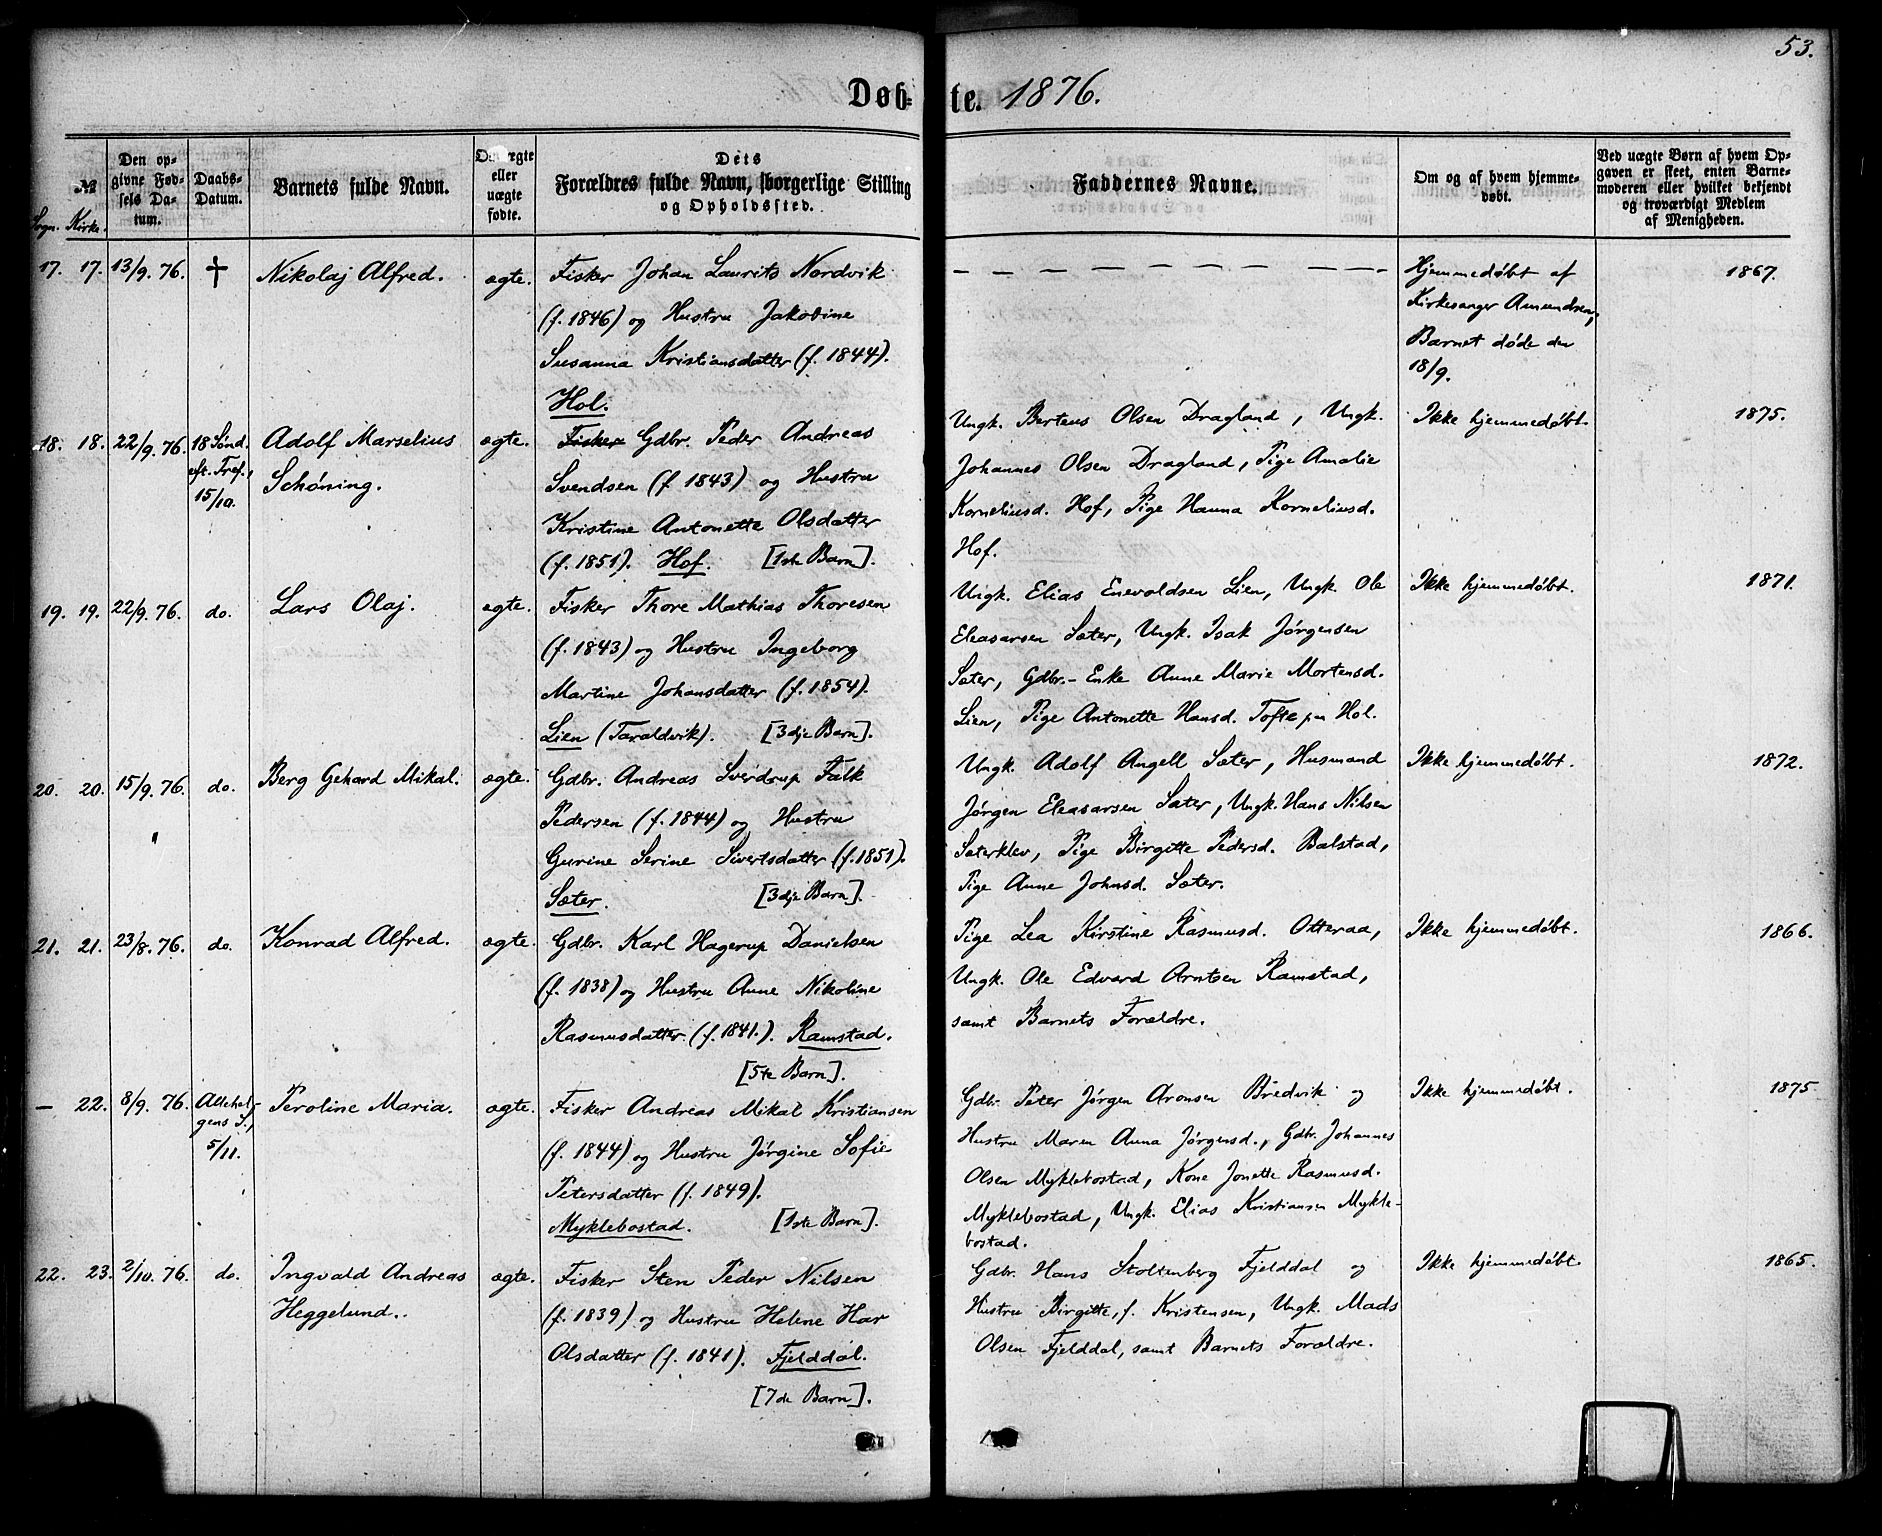 53.
Døb- te. 1876.
№
Sogn. Kirke.
Den op-
givne Fød-
sels Da-
tum.
Daabs-
Datum.
Barnets fulde Navn.
Om ægte
eller
uægte
fødte.
Dets
Forældres fulde Navn, borgerlige Stilling
og Opholdssted.
Faddernes Navne.
Om og af hvem hjemme-
døbt.
Ved uægte Børn af hvem Op-
gaven er skeet, enten Barne-
moderen eller hvilket bekjendt
og troværdigt Medlem
af Menigheden.
17. 17. 13/9. 76. † Nikolaj Alfred. ægte.
Fisker Johan Laurits Nordvik
(f. 1846) og Hustru Jakobine
Susanna Kristiansdatter (f. 1844).
Hol.
Hjemmedøbt af
Kirkesanger Amundsen,
Barnet døde den
18/9.
1867.
18. 18. 22/9. 76. 18 Sønd.
eft. Tref.,
15/10.
Adolf Marselius
Schøning.
ægte.
Fisker Gdbr. Peder Andreas
Svendsen (f 1843) og Hustru
Kristine Antonette Olsdatter
(f. 1851). Hof. [1ste Barn].
Ungk. Berteus Olsen Dragland, Ungk.
Johannes Olsen Dragland, Pige Amalie
Korneliusd. Hof, Pige Hanna Korneliusd.
Hof.
Ikke hjemmedøbt.
1875.
19. 19. 22/9. 76. do. Lars Olaj. ægte.
Fisker Thore Mathias Thoresen
(f. 1843) og Hustru Ingeborg
Martine Johansdatter (f. 1854).
Lien (Taraldvik). [3dje Barn].
Ungk. Elias Enevoldsen Lien, Ungk. Ole
Eleasarsen Sæter, Ungk. Isak Jørgensen
Sæter, Gdbr.- Enke Anne Marie Mortensd.
Lien, Pige Antonette Hansd. Tofte paa Hol.
Ikke hjemmedøbt.
1871.
20. 20. 15/9. 76. do. Berg Gehard Mikal. ægte.
Gdbr. Andreas Sverdrup Falk
Pedersen (f. 1844) og Hustru
Gurine Serine Sivertsdatter (f. 1851).
Sæter. [3dje Barn].
Ungk. Adolf Angell Sæter, Husmand
Jørgen Eleasarsen Sæter, Ungk. Hans Nilsen
Sæterklev, Pige Birgitte Pedersd. Balstad,
Pige Anne Johnsd. Sæter.
Ikke hjemmedøbt.
1872.
21. 21. 23/8. 76. do. Konrad Alfred. ægte.
Gdbr. Karl Hagerup Danielsen
(f. 1838) og Hustru Anne Nikoline
Rasmusdatter (f. 1841.). Ramstad.
[5te Barn].
Pige Lea Kirstine Rasmusd. Otteraa,
Ungk. Ole Edvard Arntsen Ramstad,
samt Barnets Forældre.
Ikke hjemmedøbt.
1866.
— 22. 8/9. 76. Allehel-
gens S.,
5/11.
Peroline Maria. ægte.
Fisker Andreas Mikal Kristiansen
(f. 1844) og Hustru Jørgine Sofie
Petersdatter (f. 1849).
Myklebostad. [1ste Barn].
Gdbr. Peter Jørgen Aronsen Bredvik og
Hustru Maren Anna Jørgensd., Gdbr. Johannes
Olsen Myklebostad, Kone Jonette Rasmusd.
Myklebostad, Ungk. Elias Kristiansen Mykle-
bostad.
Ikke hjemmedøbt.
1875
22. 23. 2/10. 76. do. Ingvald Andreas
Heggelund.
ægte.
Fisker Sten Peder Nilsen
(f. 1839) og Hustru Helene Har
Olsdatter (f. 1841). Fjelddal.
[7de Barn].
Gdbr. Hans Stoltenberg Fjelddal og
Hustru Birgitte, f. Kristensen, Ungk. Mads
Olsen Fjelddal, samt Barnets Forældre.
Ikke hjemmedøbt.
1865.